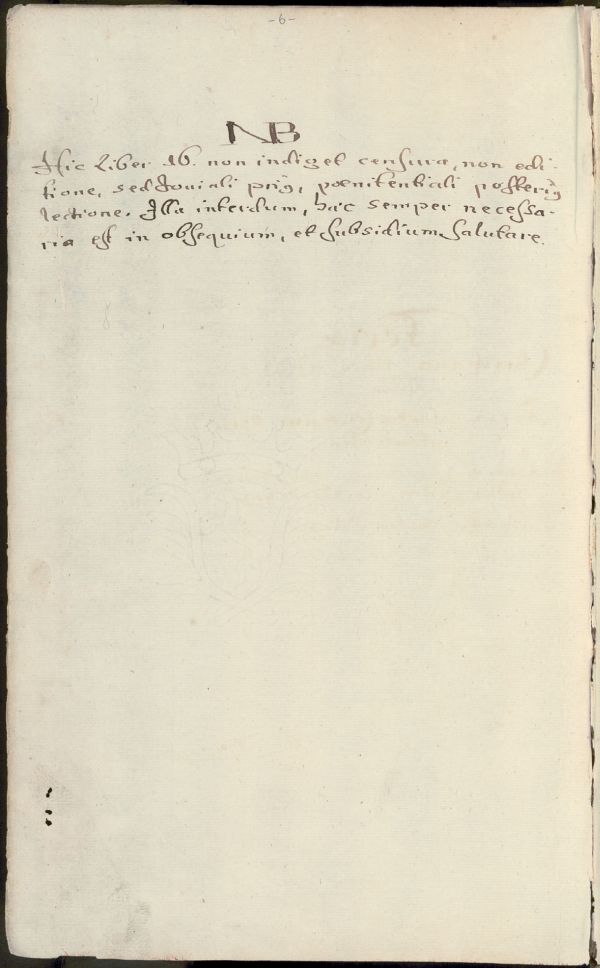 -6-
NB
Hic Liber 16. non indiget censura, non edi-
tione, sed Joviali priũ, pœnitentiali posteriũ
lectione. Illa interdum, hæc semper necessa-
ria est in obsequium, et subsidium salutare.